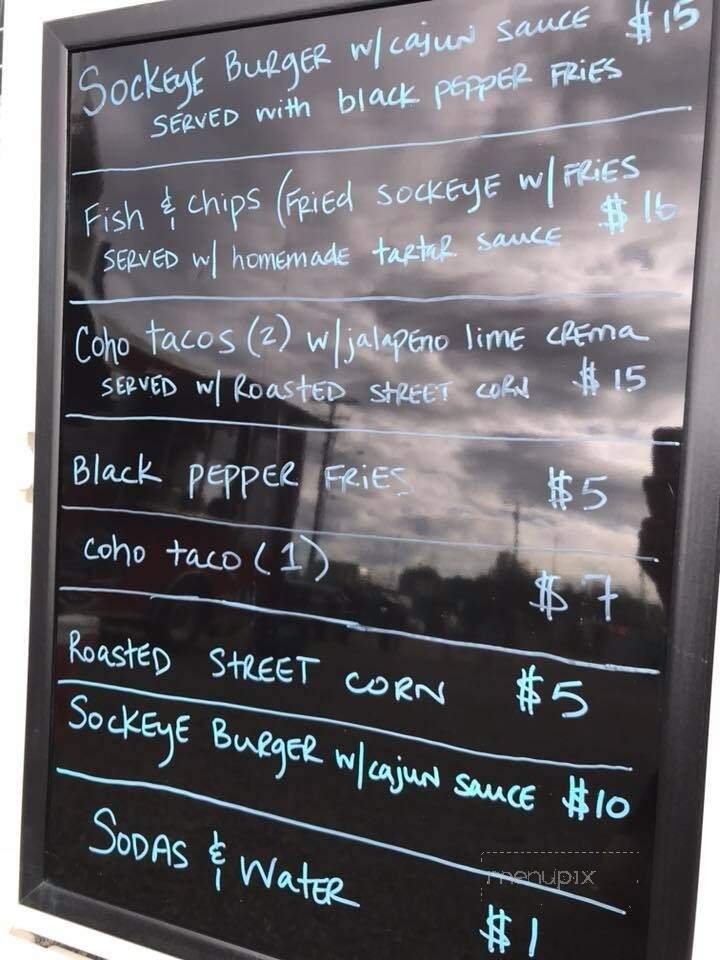 Sockeye Burger w/cajun sauce $15
served with black pepper fries
Fish & chips (fried sockeye w/ fries
served w/ homemade tartar sauce $16
Coho tacos (2) w/jalapeno lime crema
served w/ Roasted street corn $15
Black pepper fries $5
coho taco (1) $7
Roasted street corn $5
Sockeye Burger w/cajun sauce $10
Sodas & Water $1
menupix